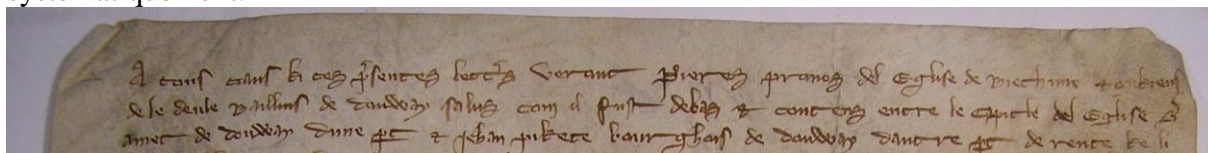 A tous caus ki ces p̄sentes lettr̄s verront Pieres prouos del Eglise de
de le deule Baillius de douway salus com il fust debas et contens entre le Capitle del Eglise S̄
amet de douway dune p̄t et Jehan pikete bourghois de douway dautre p̄t de rente ke li